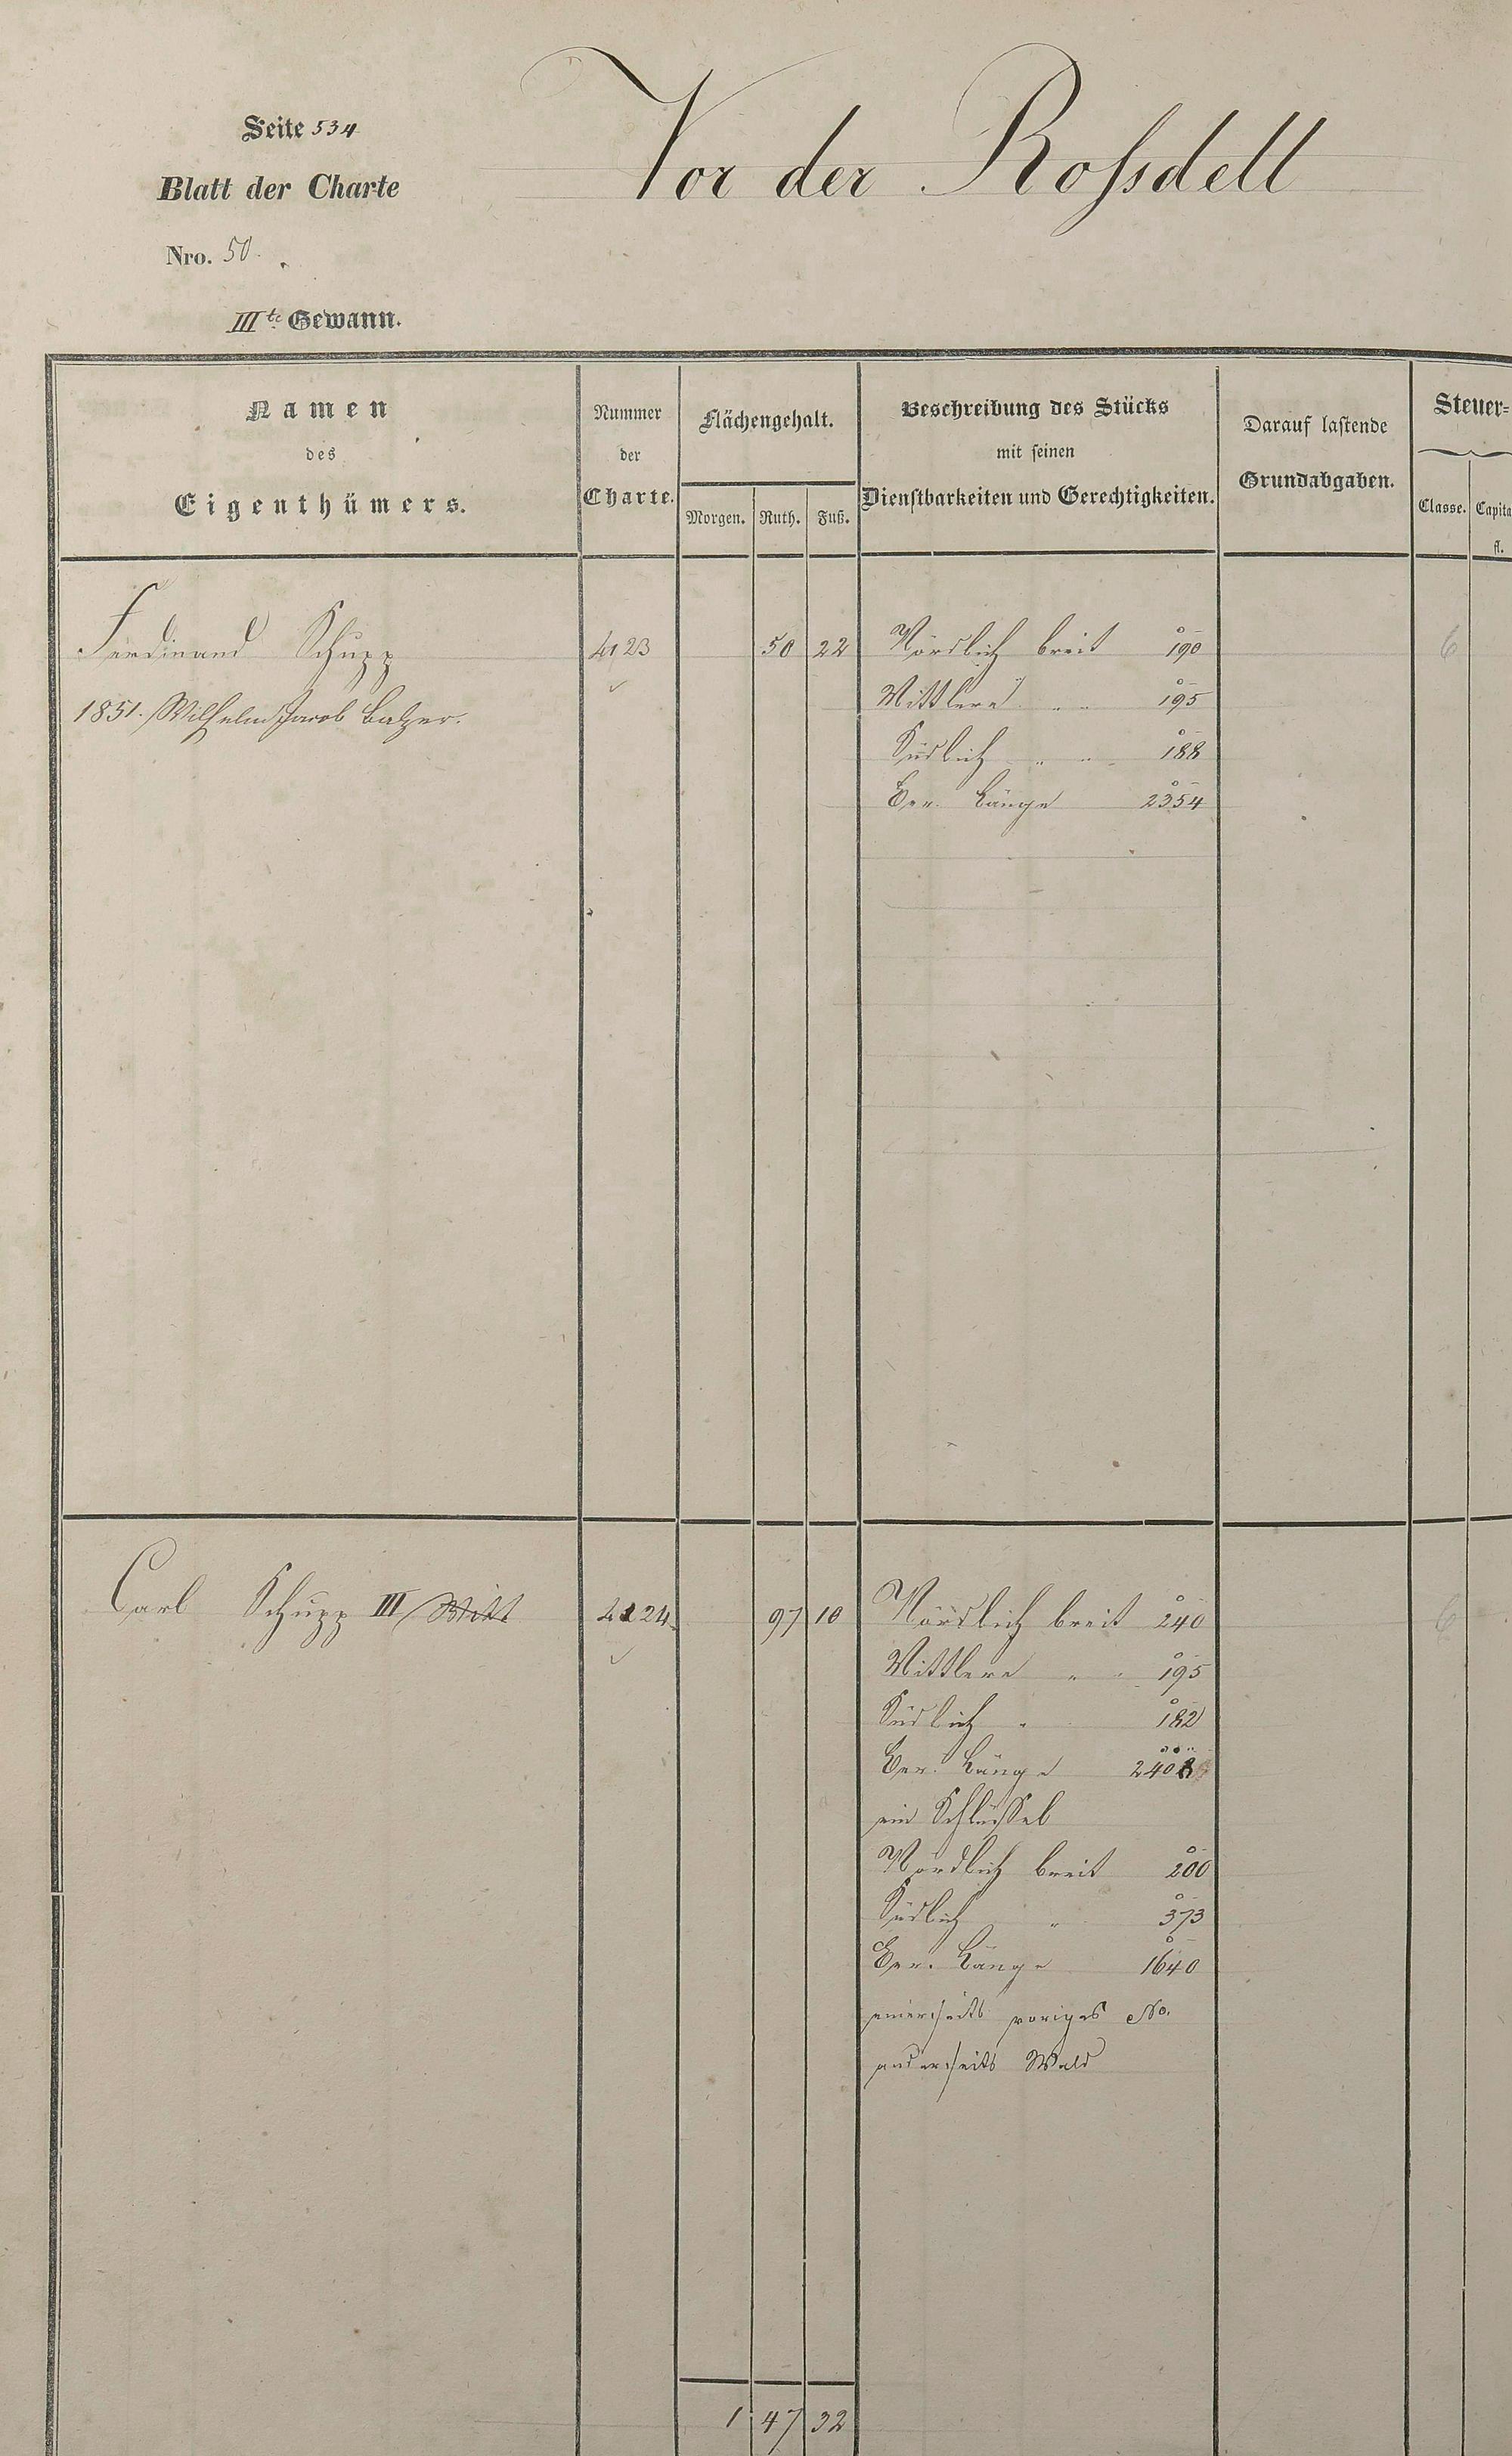 Seite 534
Vor der Roſsdell
Blatt der Charte
Nro. 50.
IIIte Gewann.
Namen
des
Eigenthümers.
Nummer
der
Charte.
Flächengehalt.
Morgen. Ruth. Fuß.
Beschreibung des Stücks
mit ſeinen
Dienſtbarkeiten und Gerechtigkeiten.
Darauf laſtende
Grundabgaben.
Steuer=
Claſſe. Capita
fl.
Ferdinand Schupp 4123 50 22 Nördlich breit 190 6
1851. Wilhelm Jacob Balzer. Mittlere " " 195
Südlich " " 188
Ber. Länge 2354
Carl Schupp III Witt 4124. 97 10 Nördlich breit 240 6
Mittlere " " 195
Südlich " 182
Ber. Länge 2408
ein Schlüssel
Nördlich breit 200
Südlich " 373
Ber. Länge 1640
einerseits voriges No.
anderseits Wald
1 47 32